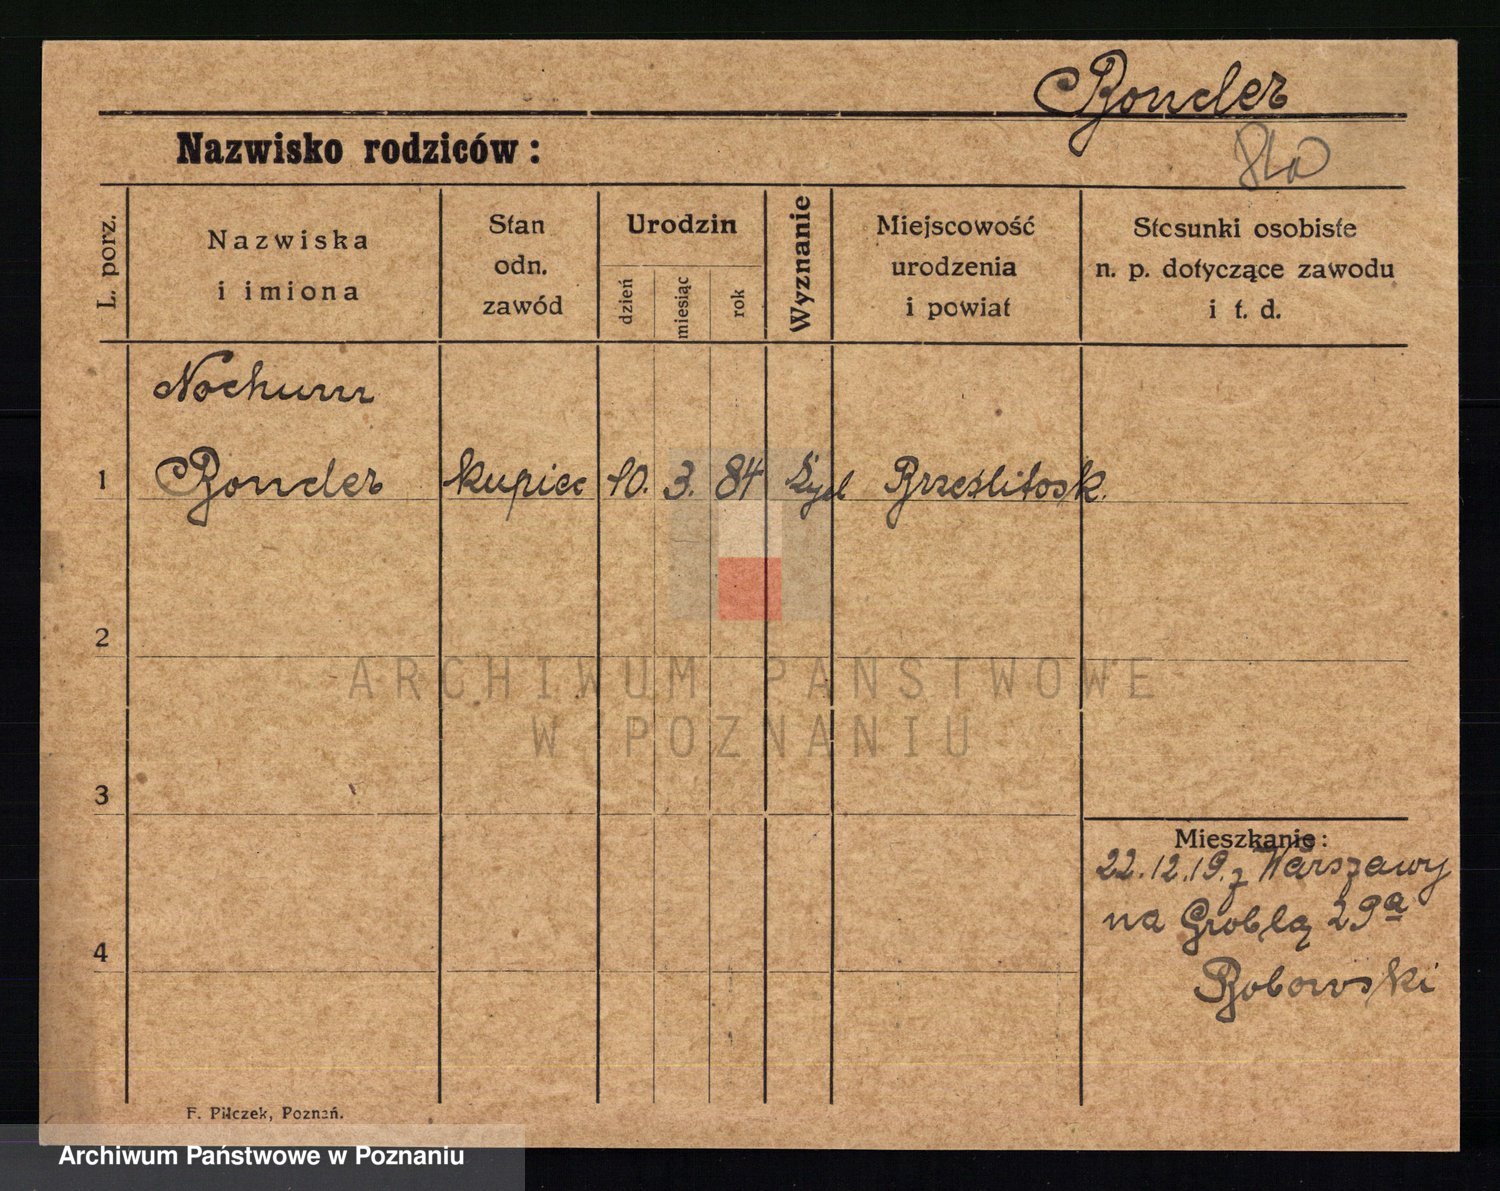 Bonder
Nazwisko rodziców:
L. porz.
Nazwiska
i imiona
Stan
odn.
zawód
Urodzin
dzień
miesiąc
rok
Wyznanie
Miejscowość
urodzenia
i powiat
Stosunki osobiste
n. p. dotyczące zawodu
i t. d.
Nochum
1 Bonder kupiec 10. 3. 84 żyd Brześlitosk.
2
3
4
Mieszkanie:
22.12.19. z Warszawy
na Groblą 29a
Bobowski
F. Piłczek, Poznań.
ARCHIWUM PAŃSTWOWE
W POZNANIU
Archiwum Państwowe w Poznaniu